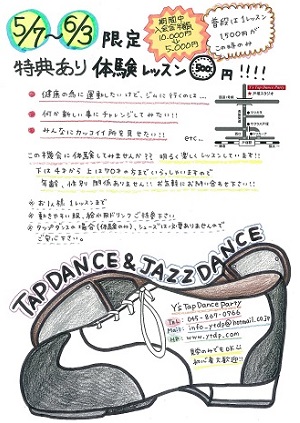 5/7〜6/3 限定
期間中
入会金半額
10,000円
↓
5,000円
普段は1レッスン
1,500円が
この時のみ
特典あり 体験レッスン 500円!!!!
健康の為に運動したいけど、ジムに行くのは…
何か新しい事にチャレンジしてみたい!!
みんなにカッコイイ所を見せたい!!
etc…
この機会に体験してみませんか?? 明るく楽しくレッスンしています!!
下は4才から上は70才の方までいらっしゃいますので
年齢、性別関係ありません!! お気軽にお問い合わせ下さい!!
お1人様1レッスンまで
動きやすい服、飲み物ご用意下さい
タップダンスの場合(体験のみ)、シューズは必要ありませんので
ご安心下さい。
TAP DANCE & JAZZ DANCE
Y's Tap Dance Party
TEL: 045-869-0766
Mail: info_ytdp@hotmail.co.jp
HP: www.ytdp.com
見学のみでもOK
初心者大歓迎!!